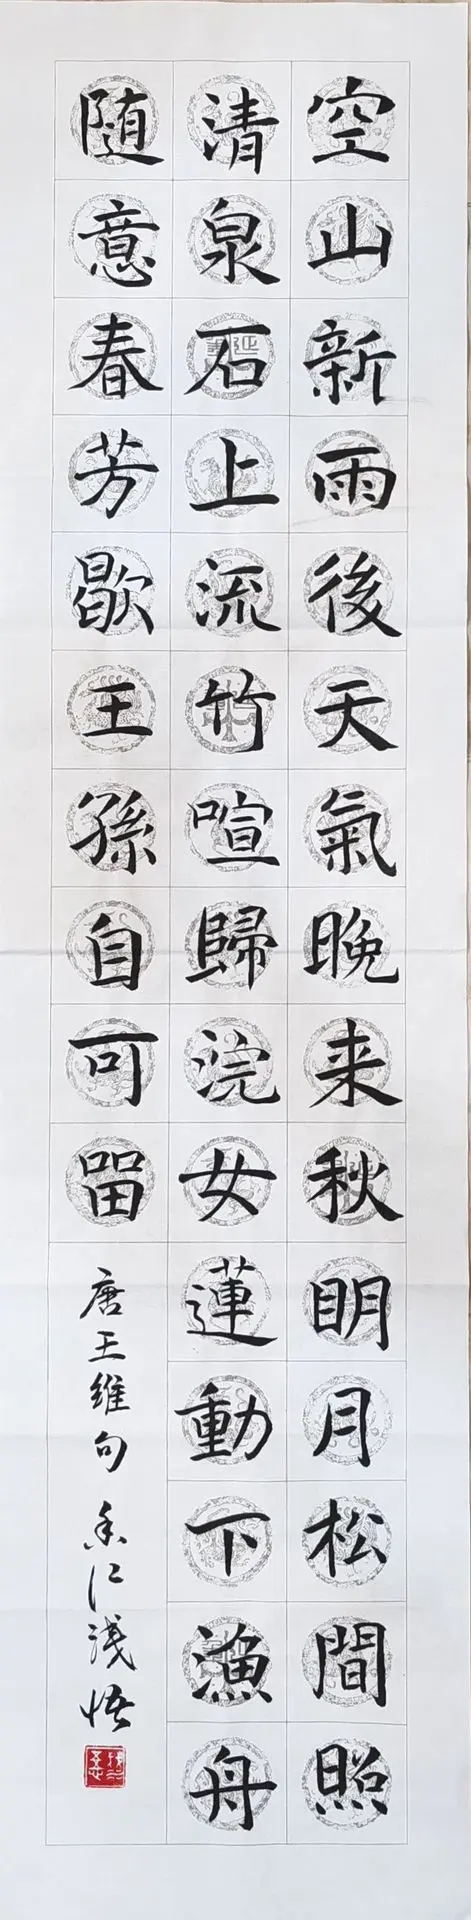 空山新雨後天氣晚来秋明月松間照
清泉石上流竹喧歸浣女蓮動下漁舟
随意春芳歇王孫自可留
唐王維句 仁浅悟